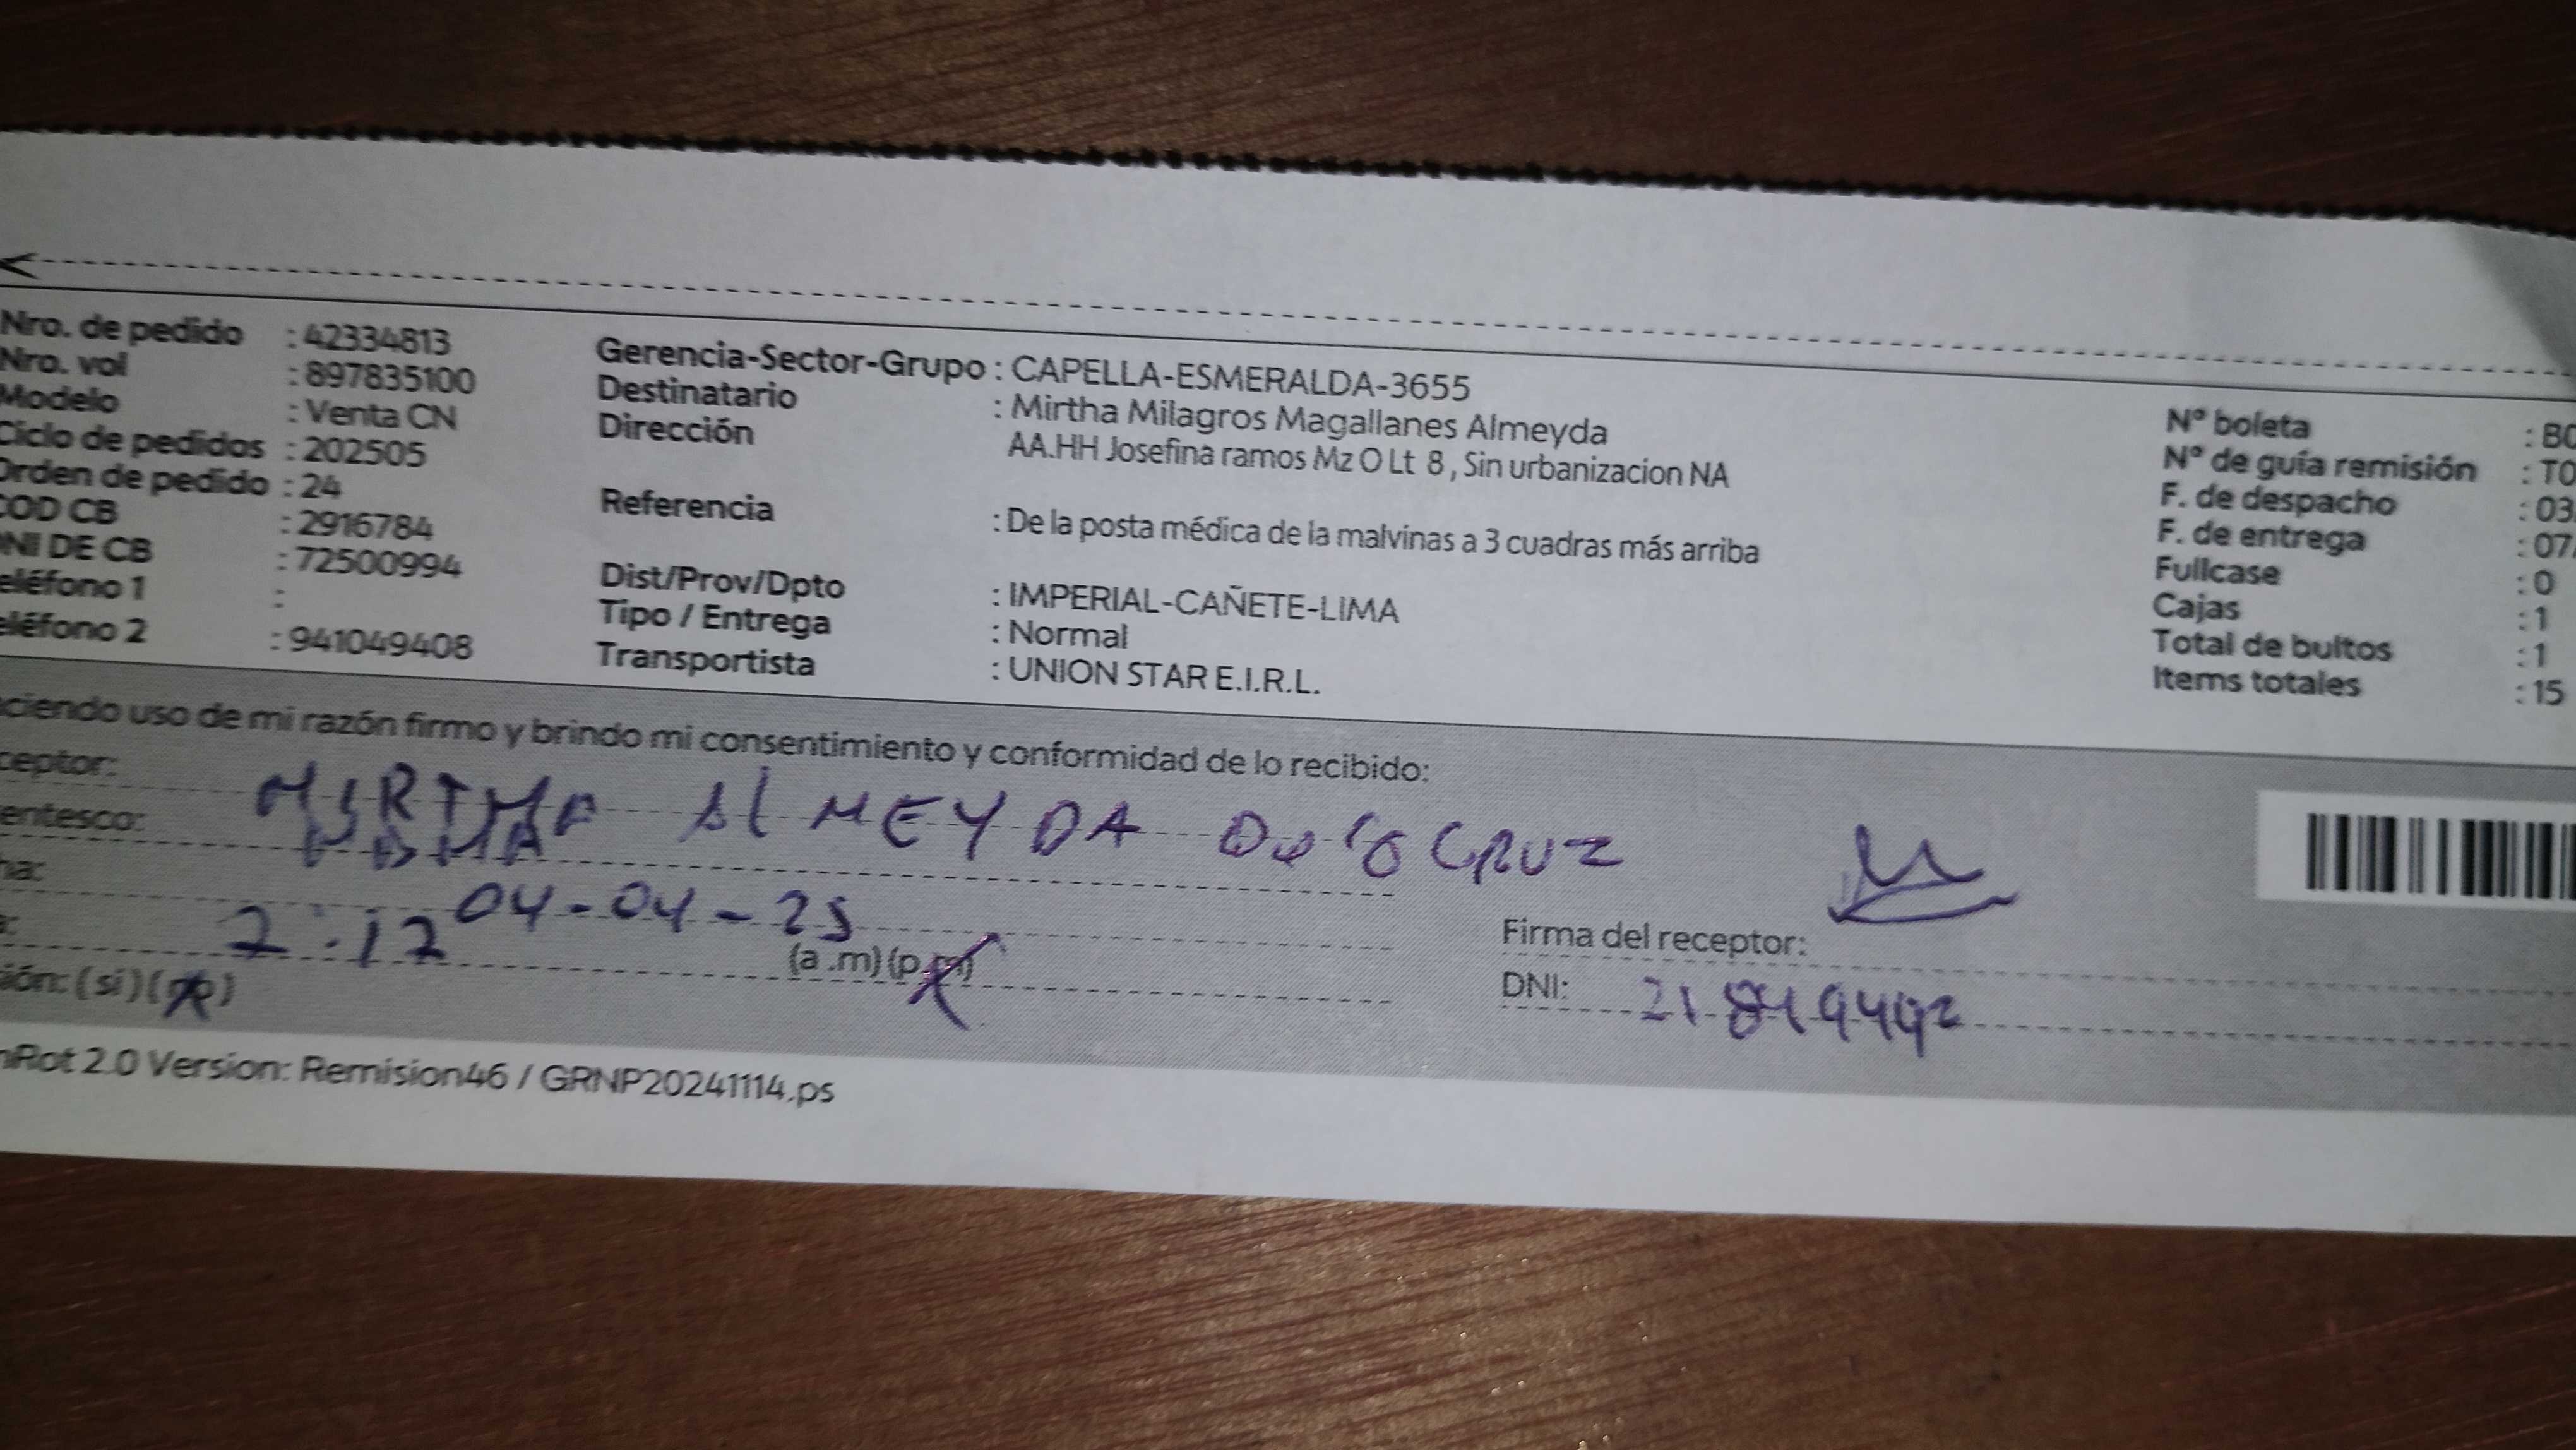 Nro. de pedido : 42334813
Nro. vol : 897835100
Modelo : Venta CN
Ciclo de pedidos : 202505
Orden de pedido : 24
COD CB : 2916784
NI DE CB : 72500994
eléfono 1 :
eléfono 2 : 941049408
Gerencia-Sector-Grupo : CAPELLA-ESMERALDA-3655
Destinatario : Mirtha Milagros Magallanes Almeyda
Dirección AA.HH Josefina ramos Mz O Lt 8 , Sin urbanizacion NA
Referencia : De la posta médica de la malvinas a 3 cuadras más arriba
Dist/Prov/Dpto : IMPERIAL-CAÑETE-LIMA
Tipo / Entrega : Normal
Transportista : UNION STAR E.I.R.L.
Nº boleta : B0
Nº de guía remisión : T0
F. de despacho : 03
F. de entrega : 07
Fullcase : 0
Cajas : 1
Total de bultos : 1
Items totales : 15
ciendo uso de mi razón firmo y brindo mi consentimiento y conformidad de lo recibido:
ceptor: MIRTHA AlMEYDA CRUZ
entesco:
ha: 04-04-25
2:17 (a .m) (p.m)
ión: ( si ) ( )
Firma del receptor:
DNI:
Rot 2.0 Version: Remision46 / GRNP20241114.ps